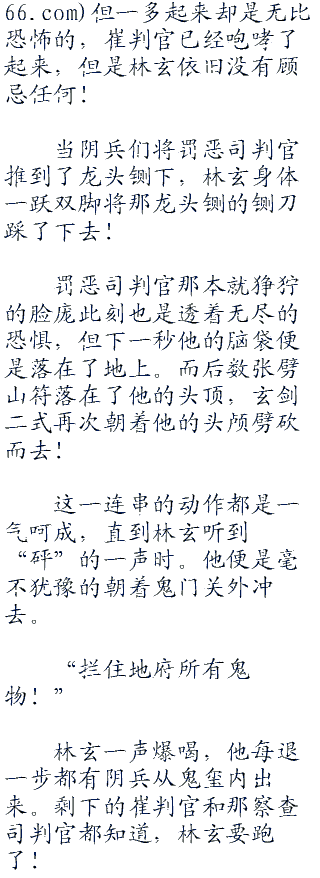 66.com)但一多起来却是无比
恐怖的，崔判官已经咆哮了
起来，但是林玄依旧没有顾
忌任何！
当阴兵们将罚恶司判官
推到了龙头铡下，林玄身体
一跃双脚将那龙头铡的铡刀
踩了下去！
罚恶司判官那本就狰狞
的脸庞此刻也是透着无尽的
恐惧，但下一秒他的脑袋便
是落在了地上。而后数张劈
山符落在了他的头顶，玄剑
二式再次朝着他的头颅劈砍
而去！
这一连串的动作都是一
气呵成，直到林玄听到
“砰”的一声时。他便是毫
不犹豫的朝着鬼门关外冲
去。
“拦住地府所有鬼
物！”
林玄一声爆喝，他每退
一步都有阴兵从鬼玺内出
来。剩下的崔判官和那察查
司判官都知道，林玄要跑
了！